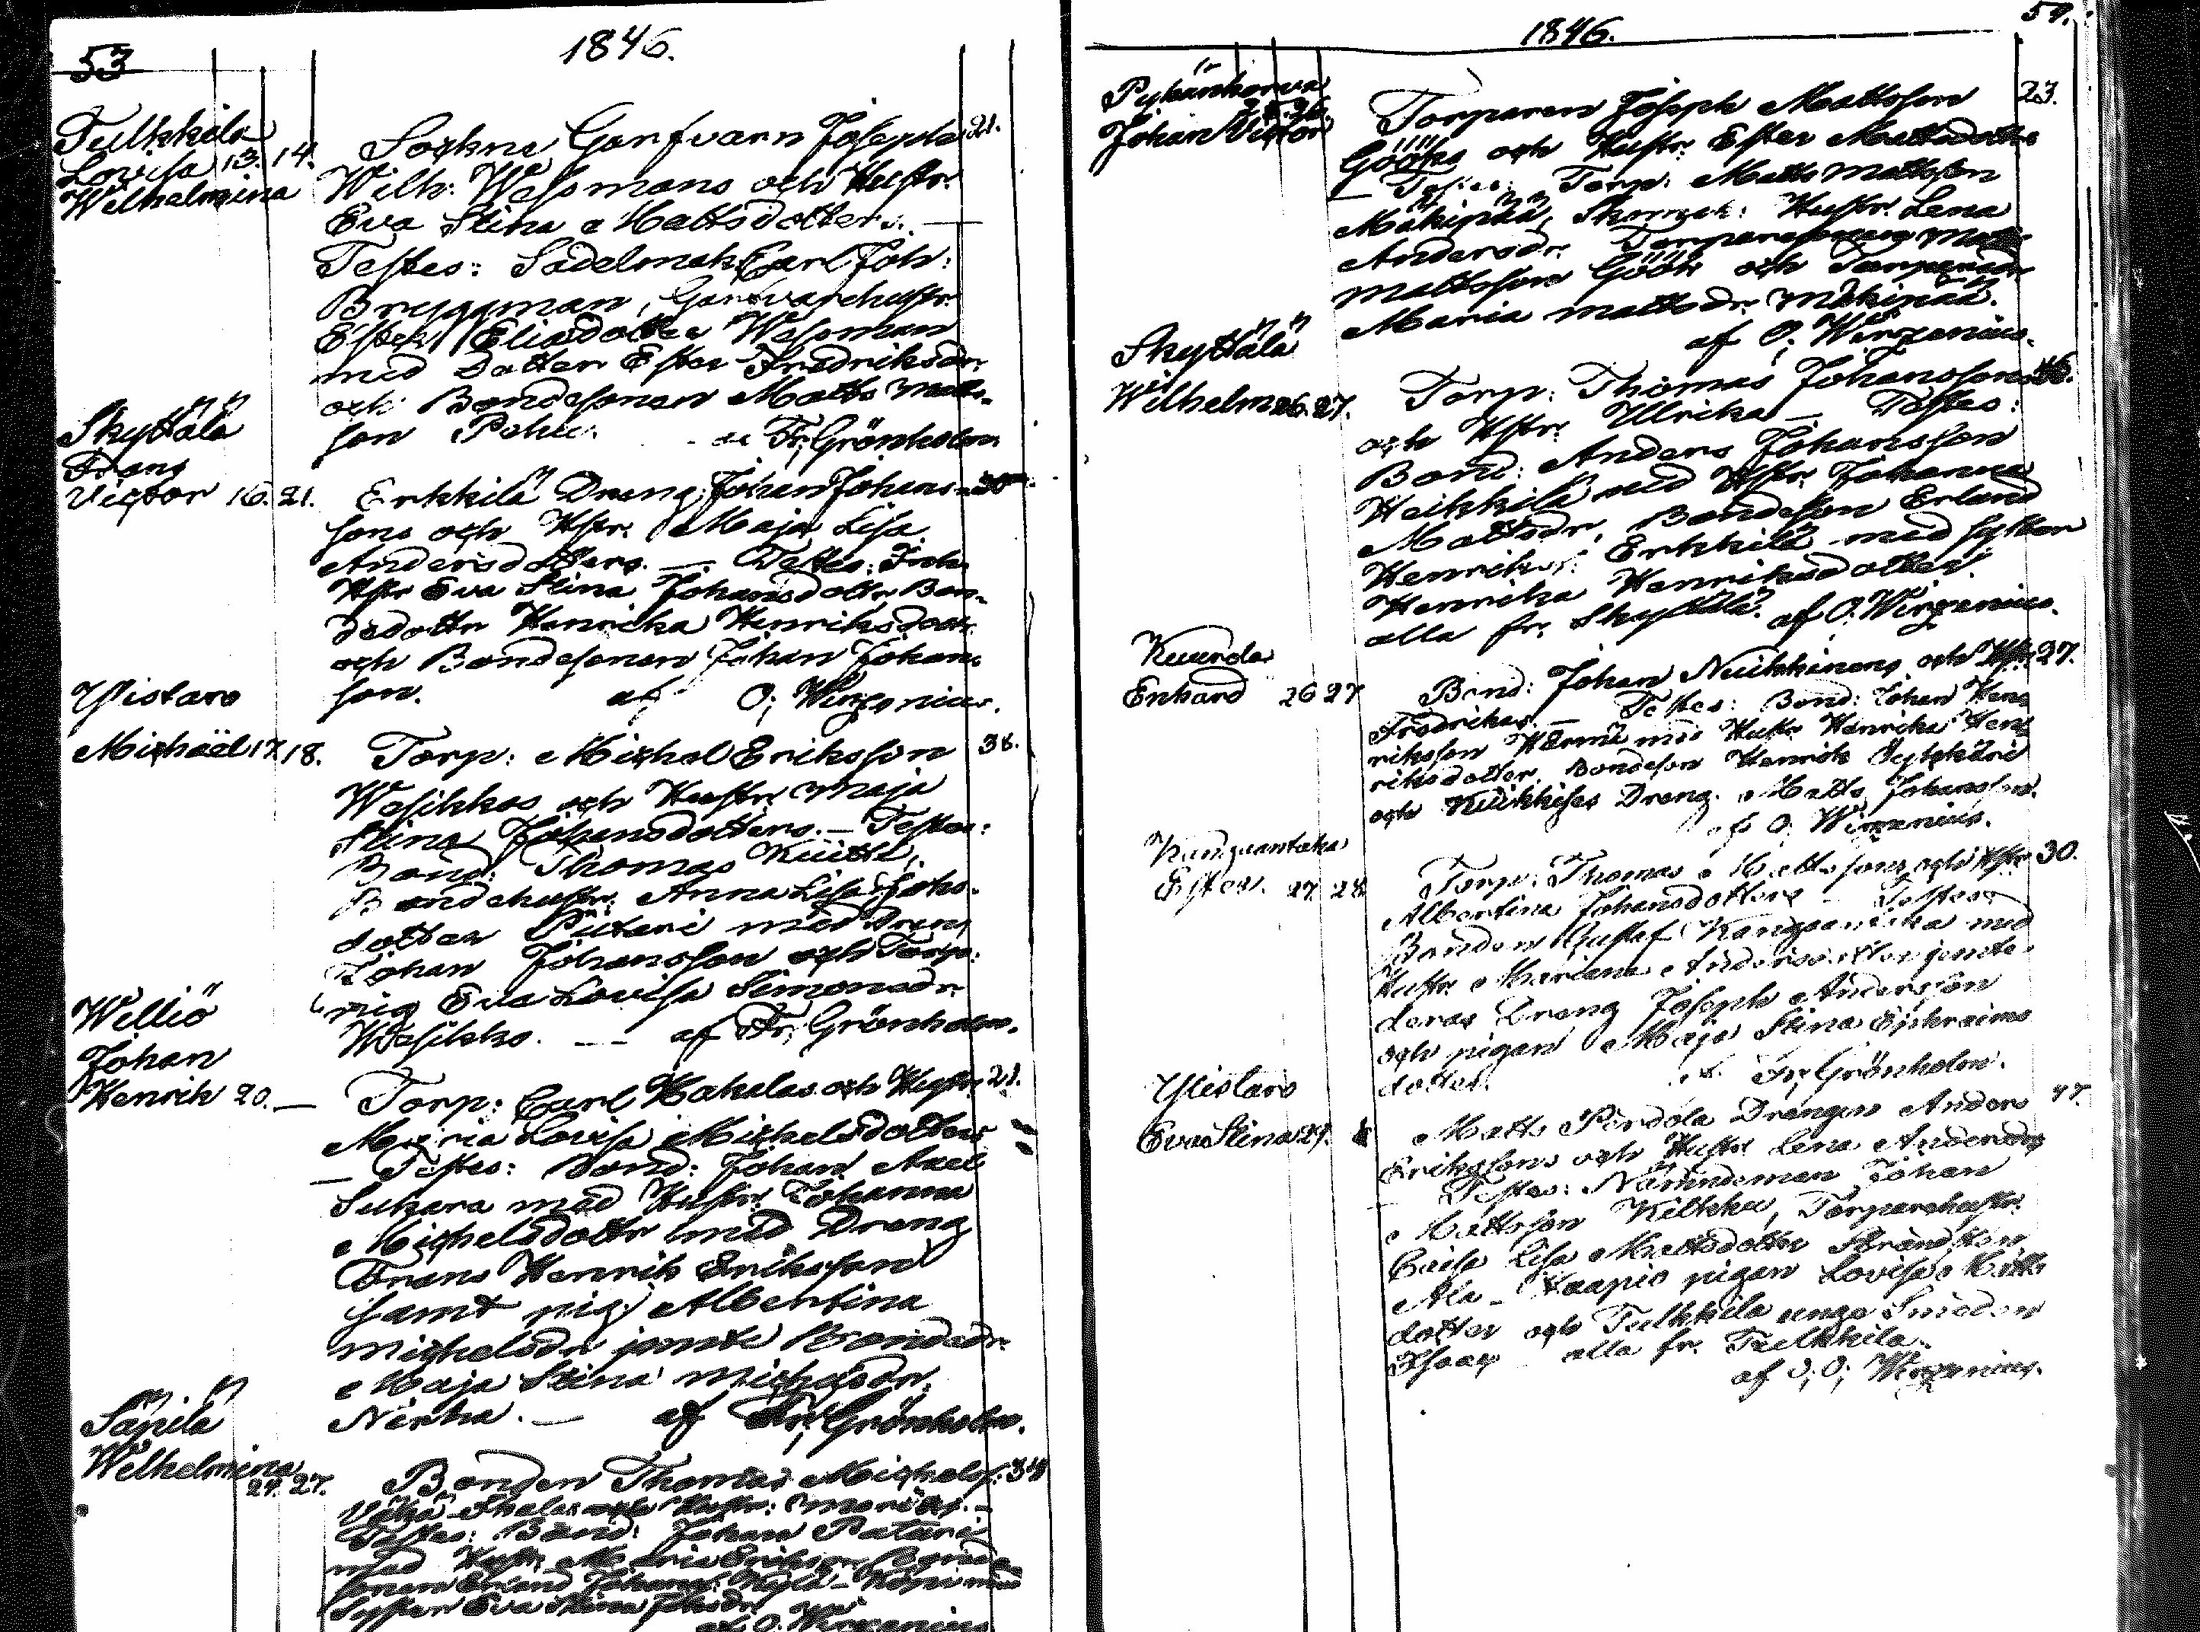 53
1846.
Tulkkila
Lovisa 13. 14.
Wilhelmina
Sockne Garfvarn Josephs 21.
Wilh: Wessmans och Hustr.
Eva Stina Mattsdotters. —
Testes: Sadelmak. Carl Joh:
Bryggman, Garfvarehustr.
Ester Eliædotter Wessman
med Dotter Ester Fredriksdr.
och Bondesonen Matts Matts-
son af Fr. Grönholm
Skyttälä
Frans
Victor 16. 21.
Erkkilä Dreng Johan Johans- 30
sons och Hstr. Maja Lisa
Andersdotters. — Testes: Inh.
Hstr Eva Stina Johansdottr, Bon-
dedottr Henrika Henriksdottr
och Bondesonen Johan Johans
son. af O. Wirzenius.
Ylistaro
Michaël 17. 18.
Torp: Michel Eriksson 38.
Wesikkos och Hustr. Maja
Stina Johansdotters. — Testes:
Bond: Thomas Küttä,
Bondehustr. Anna Lisa Johs-
dotter med Dreng
Johan Johansson och Torp:
pig Eva Lovisa Simonsdr.
Wesikko. — af Fr. Grönholm.
Williö
Johan
Henrik 20. —
Torp: Carl Hakalas och Hustr. 21.
Maria Lovisa Michelsdotters
— Testes: Bond: Johan Axel
Sukara med Hustr. Johanna
Michelsdottr med Dreng
Frans Henrik Eriksson
samt pig. Albertina
Michelsdr jemte Bondedr.
Maja Stina Michelsdr.
Nirha. — af Fr. Grönholm.
Sänilä
Wilhelmina
24. 27.
Bonden Thomas Michelss: 34
och Hustr: Marias. —
Testes: Bond: Johan
med Hustr. Maria Eriksdr, Bonde
sonen Erland Johanss: Kylä-
Syster Eva Stina Johsdr.
af O. Wirzenius
54.
1846.
Pyhänkorva
25. 26.
Johan Victor
Torparen Joseph Mattsson 23.
Gööks och Hustr. Ester Mattsdotters
— Testes: Torp: Matts Mattsson
Mäkipää, Hustr. Lena
Andersdr. Torparesonen Matts
Mattsson Göök och Torparedr.
Maria Mattsdr. Mäkipää.
af O. Wirzenius.
Skyttälä
Wilhelm 26. 27.
Torp: Thomas Johanssons 46.
och Hstr. Ulrika — Testes:
Bond: Anders Johansson
Heikkilä med Hstr. Johanna
Mattsdr, Bondeson Erland
Henrikss: Erkkilä med syster
Henrika Henriksdotter
alla fr. Skyttälä. af O. Wirzenius.
Kuurola
Enhard 26 27
Bond: Johan Nuikkinens och Hstr. 27.
Fredrikas. — Testes: Bond: Johan Hen
riksson Härmä med Hustr Henrika Hen
riksdotter, Bondeson Henrik
och Dreng. Matts Johansson.
af O. Wirzenius.
Kangvantaka
Ester. 27. 28
Torp: Thomas Mattssons och Hstr. 30.
Albertina Johansdotters — Testes:
Bonden Gustaf med
Hustr. Mariana Andersdotter jemte
deras Dreng Joseph Andersson
och pigan Maja Stina Ephraims
dotter. af Fr. Grönholm.
Ylistaro
Eva Stina 27.
Matts Perdola Drengen Anders 47.
Erikssons och Hustr Lena Andersdrs
— Testes: Nämndeman Johan
Mattsson Kilkku, Torparehustr.
Caisa Lisa Mattsdotter
Ala- Haapio pigan Lovisa Matts
dotter och Tulkkila unge Smeden
Isaac alla fr. Tulkkila.
af O. Wirzenius.